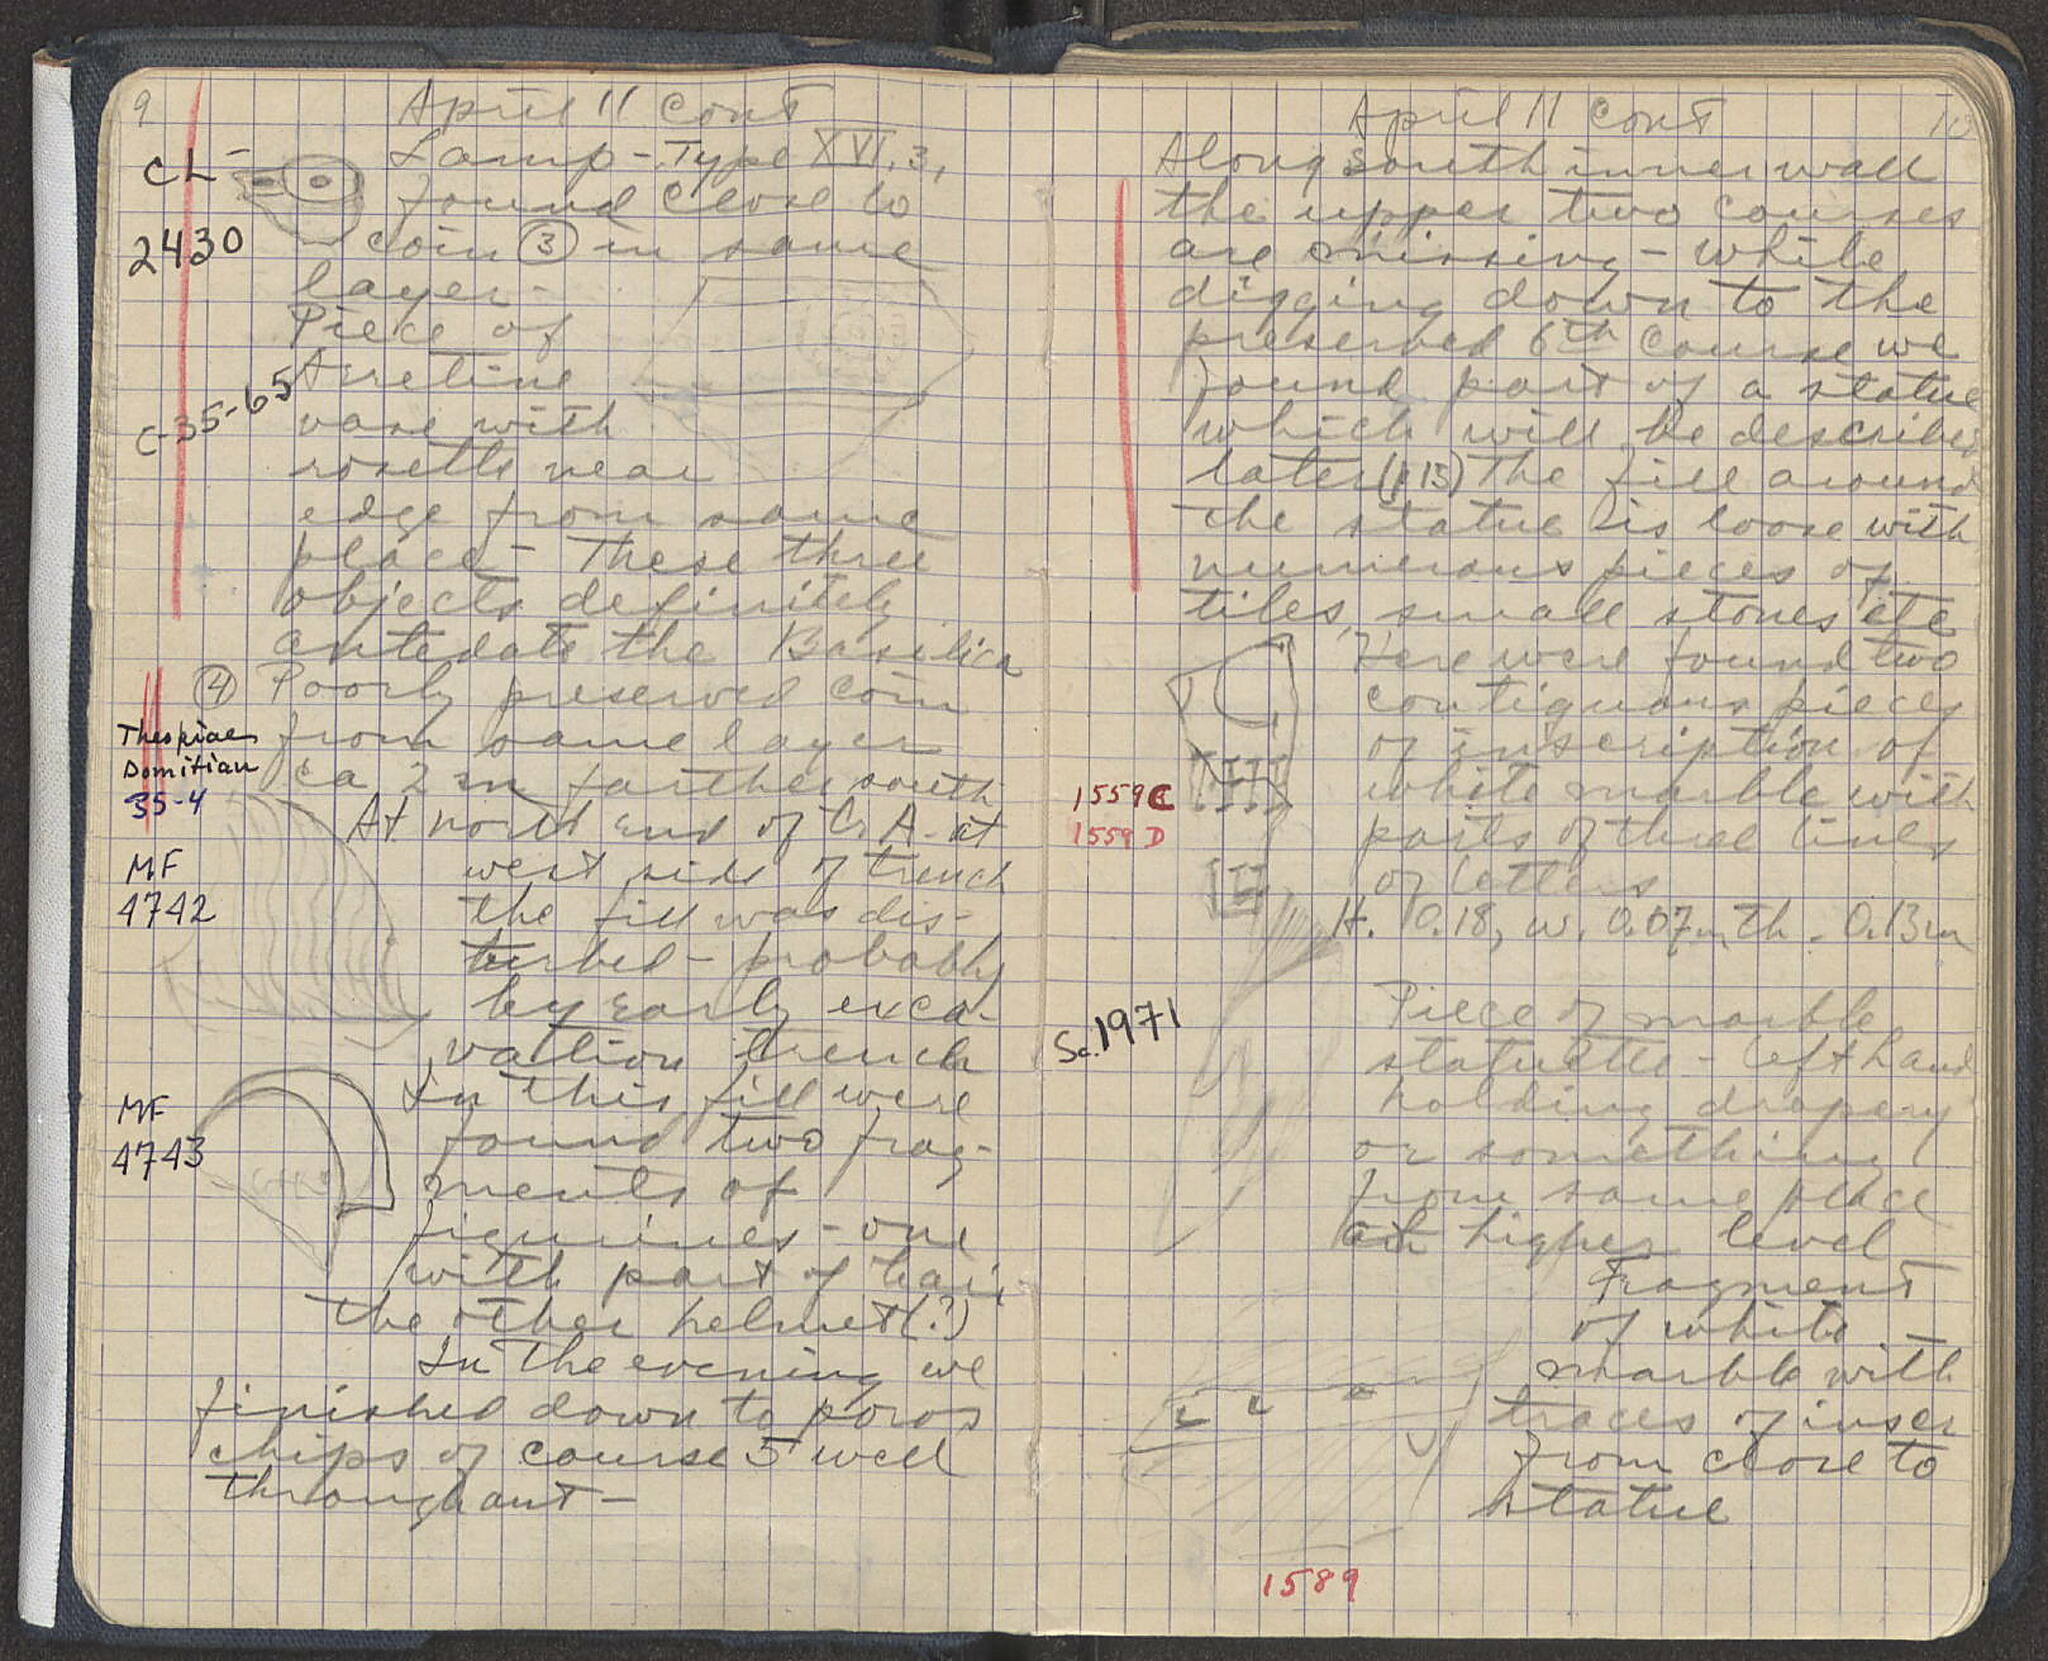 9
April 11 cont
CL-
2430
Lamp - Type XVI, 3,
found close to
coin ③ in same
layer -
Piece of
C-35-65
Arretine
vase with
rosette near
edge from same
place - These three
objects definitely
antedate the Basilica
④ Poorly preserved coin
Thespiae
Domitian
35-4
from same layer
ca 2 m farther south
At north end of Tr. A - at
MF
4742
west side of trench
the fill was dis-
turbed - probably
by early exca-
vation trench
In this fill were
MF
4743
found two frag-
ments of
figurines - one
with part of hair
the other helmet (?)
In the evening we
finished down to poros
chips of course 5 well
throughout -
April 11 cont
10
Along south inner wall
the upper two courses
are missing - while
digging down to the
preserved 6th course we
found part of a statue
which will be described
later (p 15) The fill around
the statue is loose with
numerous pieces of
tiles, small stones etc
Here were found two
contiguous pieces
of inscription of
1559C
1559D
white marble with
parts of three lines
of letters
H. 0.18, w. 0.07m th. 0.13m
Sc. 1971
Piece of marble
statuette - left hand
holding drapery
or something
from same place
at higher level
Fragment
of white
marble with
traces of inscr
from close to
statue
1589